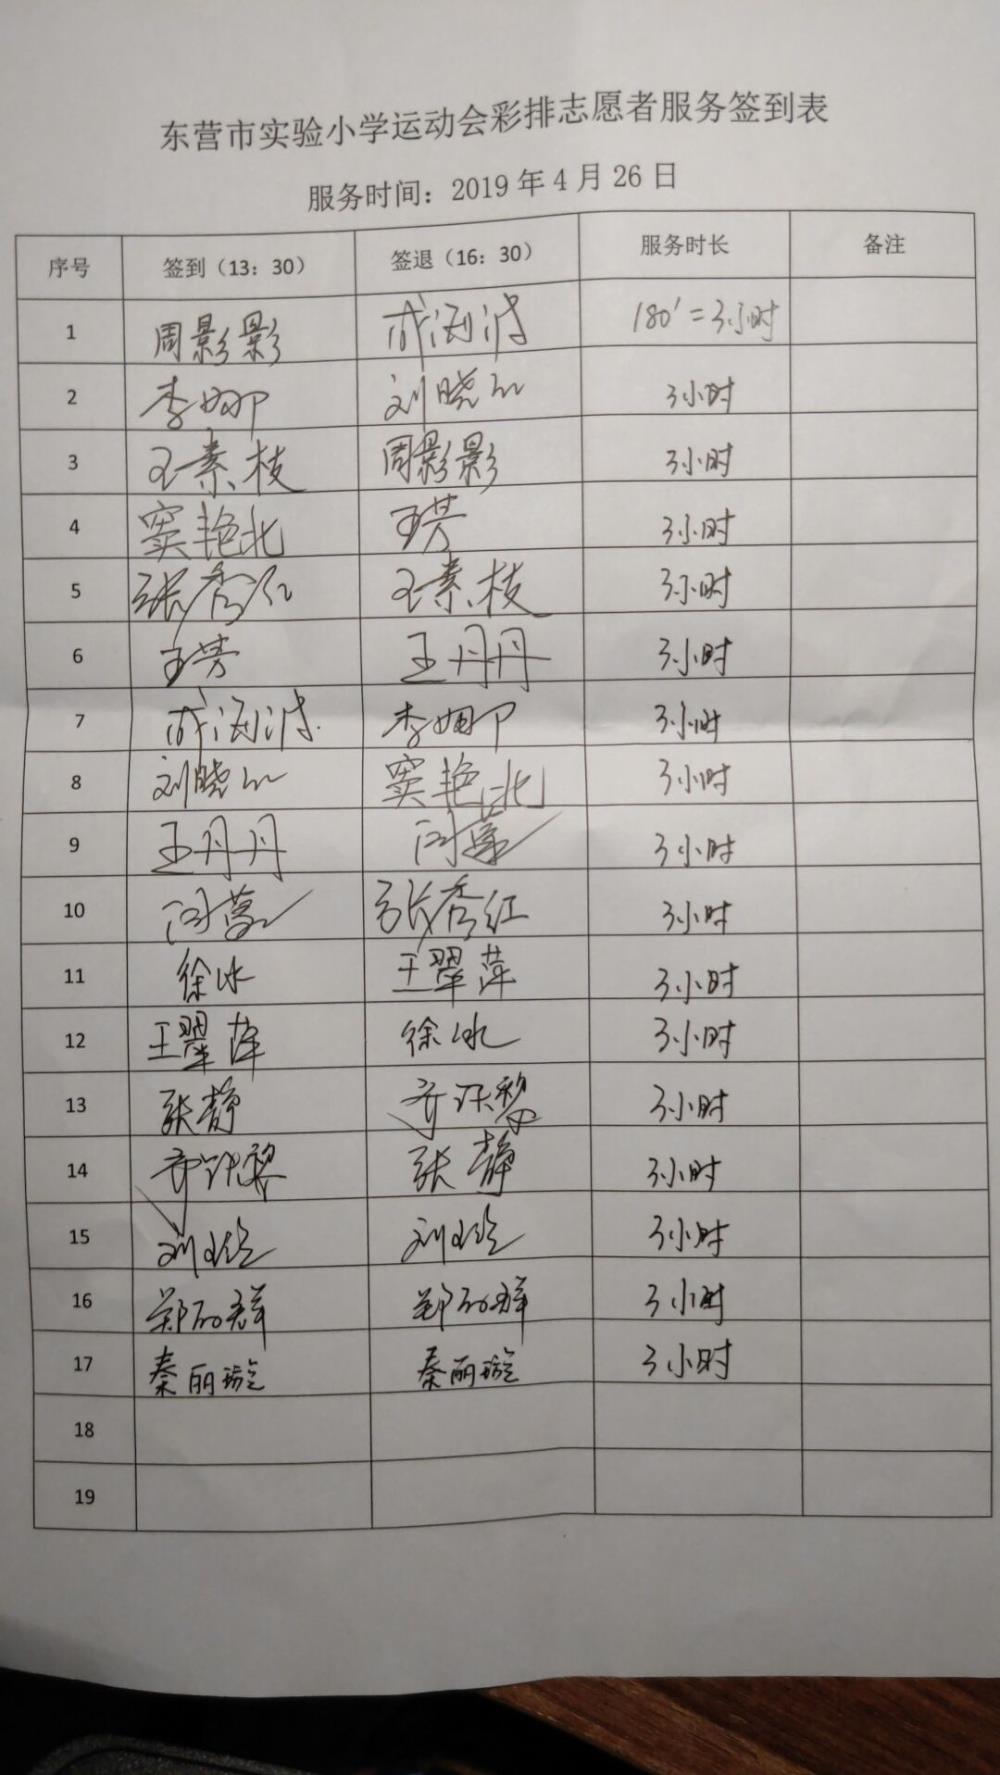 东营市实验小学运动会彩排志愿者服务签到表
服务时间：2019 年 4 月 26 日
序号 签到（13：30） 签退（16：30） 服务时长 备注
1 周影影 成海波 180′=3小时
2 李娜 刘晓 3小时
3 王素枝 周影影 3小时
4 窦艳北 王芳 3小时
5 张秀红 王素枝 3小时
6 王芳 王丹丹 3小时
7 成海波 李娜 3小时
8 刘晓 窦艳北 3小时
9 王丹丹 3小时
10 张秀红 3小时
11 徐冰 王翠萍 3小时
12 王翠萍 徐冰 3小时
13 张静 3小时
14 张静 3小时
15 刘 刘 3小时
16 郑 群 郑 群 3小时
17 秦丽璇 秦丽璇 3小时
18
19